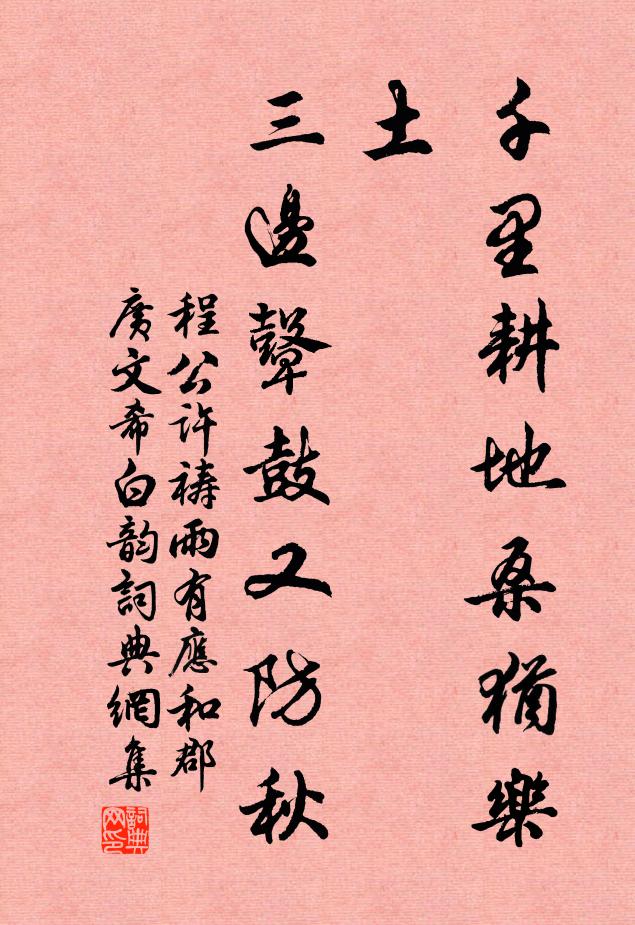 千里耕地桑猶樂
土
三邊鼙鼓又防秋
程公许祷雨有應和郡
廣文希白韵詞典網集
詞典网印